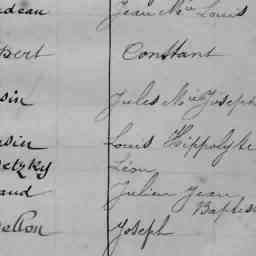 deau Jean Mie Louis
bert Constant
sin Jules Mie Joseph
sin Louis Hippolyte
etzky Léon
aud Julien Jean
Baptis
ellon Joseph